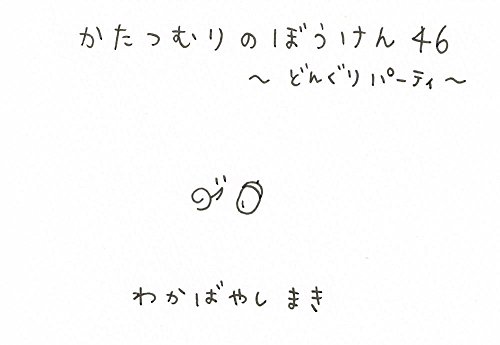 かたつむりのぼうけん 46
～ どんぐりパーティ ～
わかばやし まき